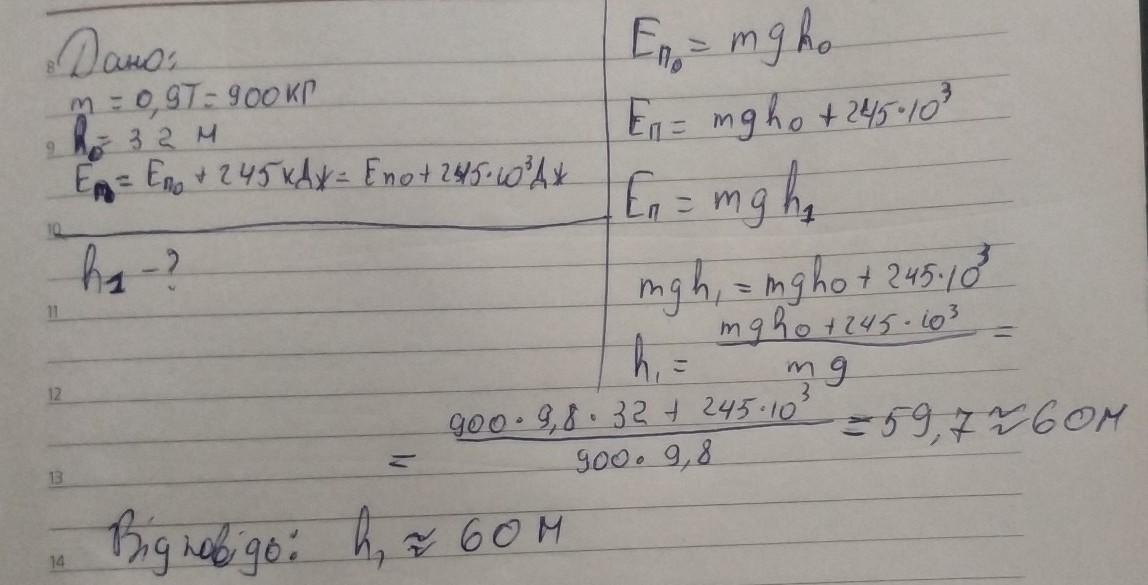 Дано:
m = 0,9т = 900 кг
h₀ = 32 м
Eп = Eп₀ + 245 кДж = Eп₀ + 245·10³Дж
h₁ - ?
Eп₀ = mgh₀
Eп = mgh₀ + 245·10³
Eп = mgh₁
mgh₁ = mgh₀ + 245·10³
h₁ = (mgh₀ + 245·10³)/(mg) =
= (900·9,8·32 + 245·10³)/(900·9,8) = 59,7 ≈ 60 м
Відповідь: h₁ ≈ 60 м
8
9
10
11
12
13
14